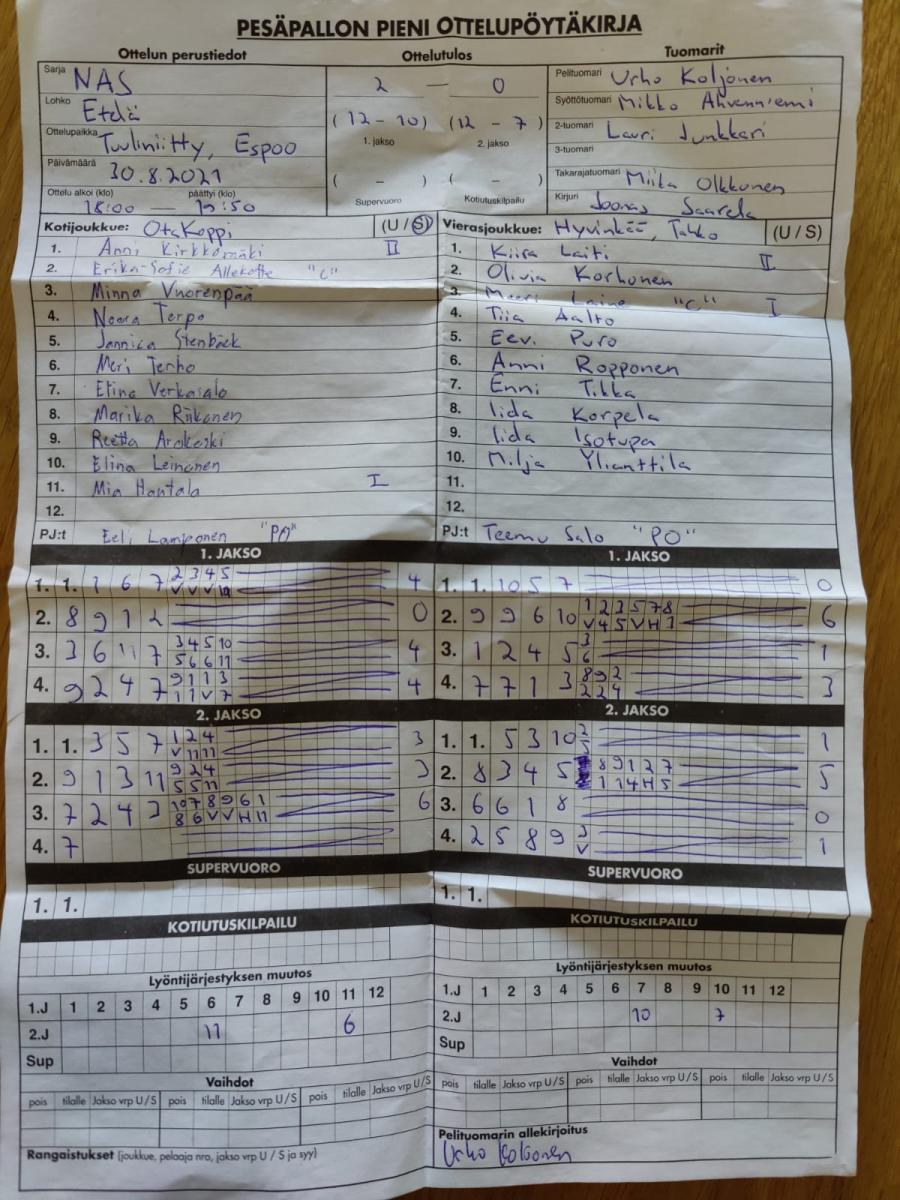 PESÄPALLON PIENI OTTELUPÖYTÄKIRJA
Ottelun perustiedot Ottelutulos Tuomarit
Sarja NAS 2 — 0 Pelituomari Urho Koljonen
Lohko Etelä (12 – 10) (12 – 7) Syöttötuomari Mikko Ahvenniemi
Ottelupaikka Tuuliniitty, Espoo 1. jakso 2. jakso 2-tuomari Lauri Junkkari
3-tuomari
Päivämäärä 30.8.2021 ( – ) ( – ) Takarajatuomari Miika Olkkonen
Ottelu alkoi (klo) päättyi (klo) Supervuoro Kotiutuskilpailu Kirjuri Joonas Saarela
18:00 — 19:50
Kotijoukkue: OtaKoppi (U / S) Vierasjoukkue: Hyvinkää, Tahko (U / S)
1. Anni Kirkkomäki II 1. Kiira Laiti II
2. Erika-Sofie "C" 2. Olivia Korhonen
3. Minna Vuorenpää 3. Meeri Laine "C" I
4. Noora Terpo 4. Tiia Aalto
5. Jannica Stenbäck 5. Eevi Puro
6. Meri Terho 6. Anni Ropponen
7. Elina Verkasalo 7. Enni Tikka
8. Marika Riikonen 8. Iida Korpela
9. Reetta Arokoski 9. Iida Isotupa
10. Elina Leinonen 10. Milja Ylianttila
11. Mia Hantala I 11.
12. 12.
PJ:t Eeli Lamponen "PO" PJ:t Teemu Salo "PO"
1. JAKSO 1. JAKSO
1. 1. 1 6 7 2 3 4 5 4 1. 1. 10 5 7 0
V V V 10
2. 8 9 1 2 0 2. 9 9 6 10 1 2 3 5 7 8 6
V 4 5 V H 1
3. 3 6 11 7 3 4 5 10 4 3. 1 2 4 5 3 1
5 6 6 11 6
4. 9 2 4 7 9 1 1 3 4 4. 7 7 1 3 8 9 2 3
1 1 V 7 2 2 4
2. JAKSO 2. JAKSO
1. 1. 3 5 7 1 2 4 3 1. 1. 5 3 10 2 1
V 11 11 5
2. 9 1 3 11 9 2 4 3 2. 8 3 4 5 8 9 1 2 7 5
5 5 11 1 1 4 H 5
3. 7 2 4 3 10 7 8 9 6 1 6 3. 6 6 1 8 0
8 6 V V H 11
4. 7 4. 2 5 8 9 3 1
V
SUPERVUORO SUPERVUORO
1. 1. 1. 1.
KOTIUTUSKILPAILU KOTIUTUSKILPAILU
Lyöntijärjestyksen muutos Lyöntijärjestyksen muutos
1.J 1 2 3 4 5 6 7 8 9 10 11 12 1.J 1 2 3 4 5 6 7 8 9 10 11 12
2.J 11 6 2.J 10 7
Sup Sup
Vaihdot Vaihdot
pois tilalle Jakso vrp U/S pois tilalle Jakso vrp U/S pois tilalle Jakso vrp U/S pois tilalle Jakso vrp U/S pois tilalle Jakso vrp U/S pois tilalle Jakso vrp U/S
Rangaistukset (joukkue, pelaaja nro, jakso vrp U / S ja syy) Pelituomarin allekirjoitus
Urho Koljonen